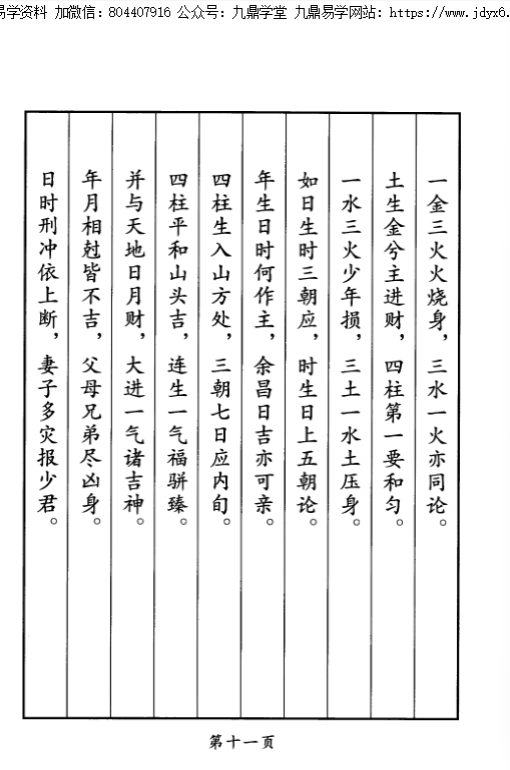 易学资料 加微信：804407916 公众号：九鼎学堂 九鼎易学网站：https://www.jdyx6.
一金三火火烧身，三水一火亦同论。
土生金兮主进财，四柱第一要和匀。
一水三火少年损，三土一水土压身。
如日生时三朝应，时生日上五朝论。
年生日时何作主，余昌日吉亦可亲。
四柱生入山方处，三朝七日应内旬。
四柱平和山头吉，连生一气福骈臻。
并与天地日月财，大进一气诸吉神。
年月相尅皆不吉，父母兄弟尽凶身。
日时刑冲依上断，妻子多灾报少君。
第十一页